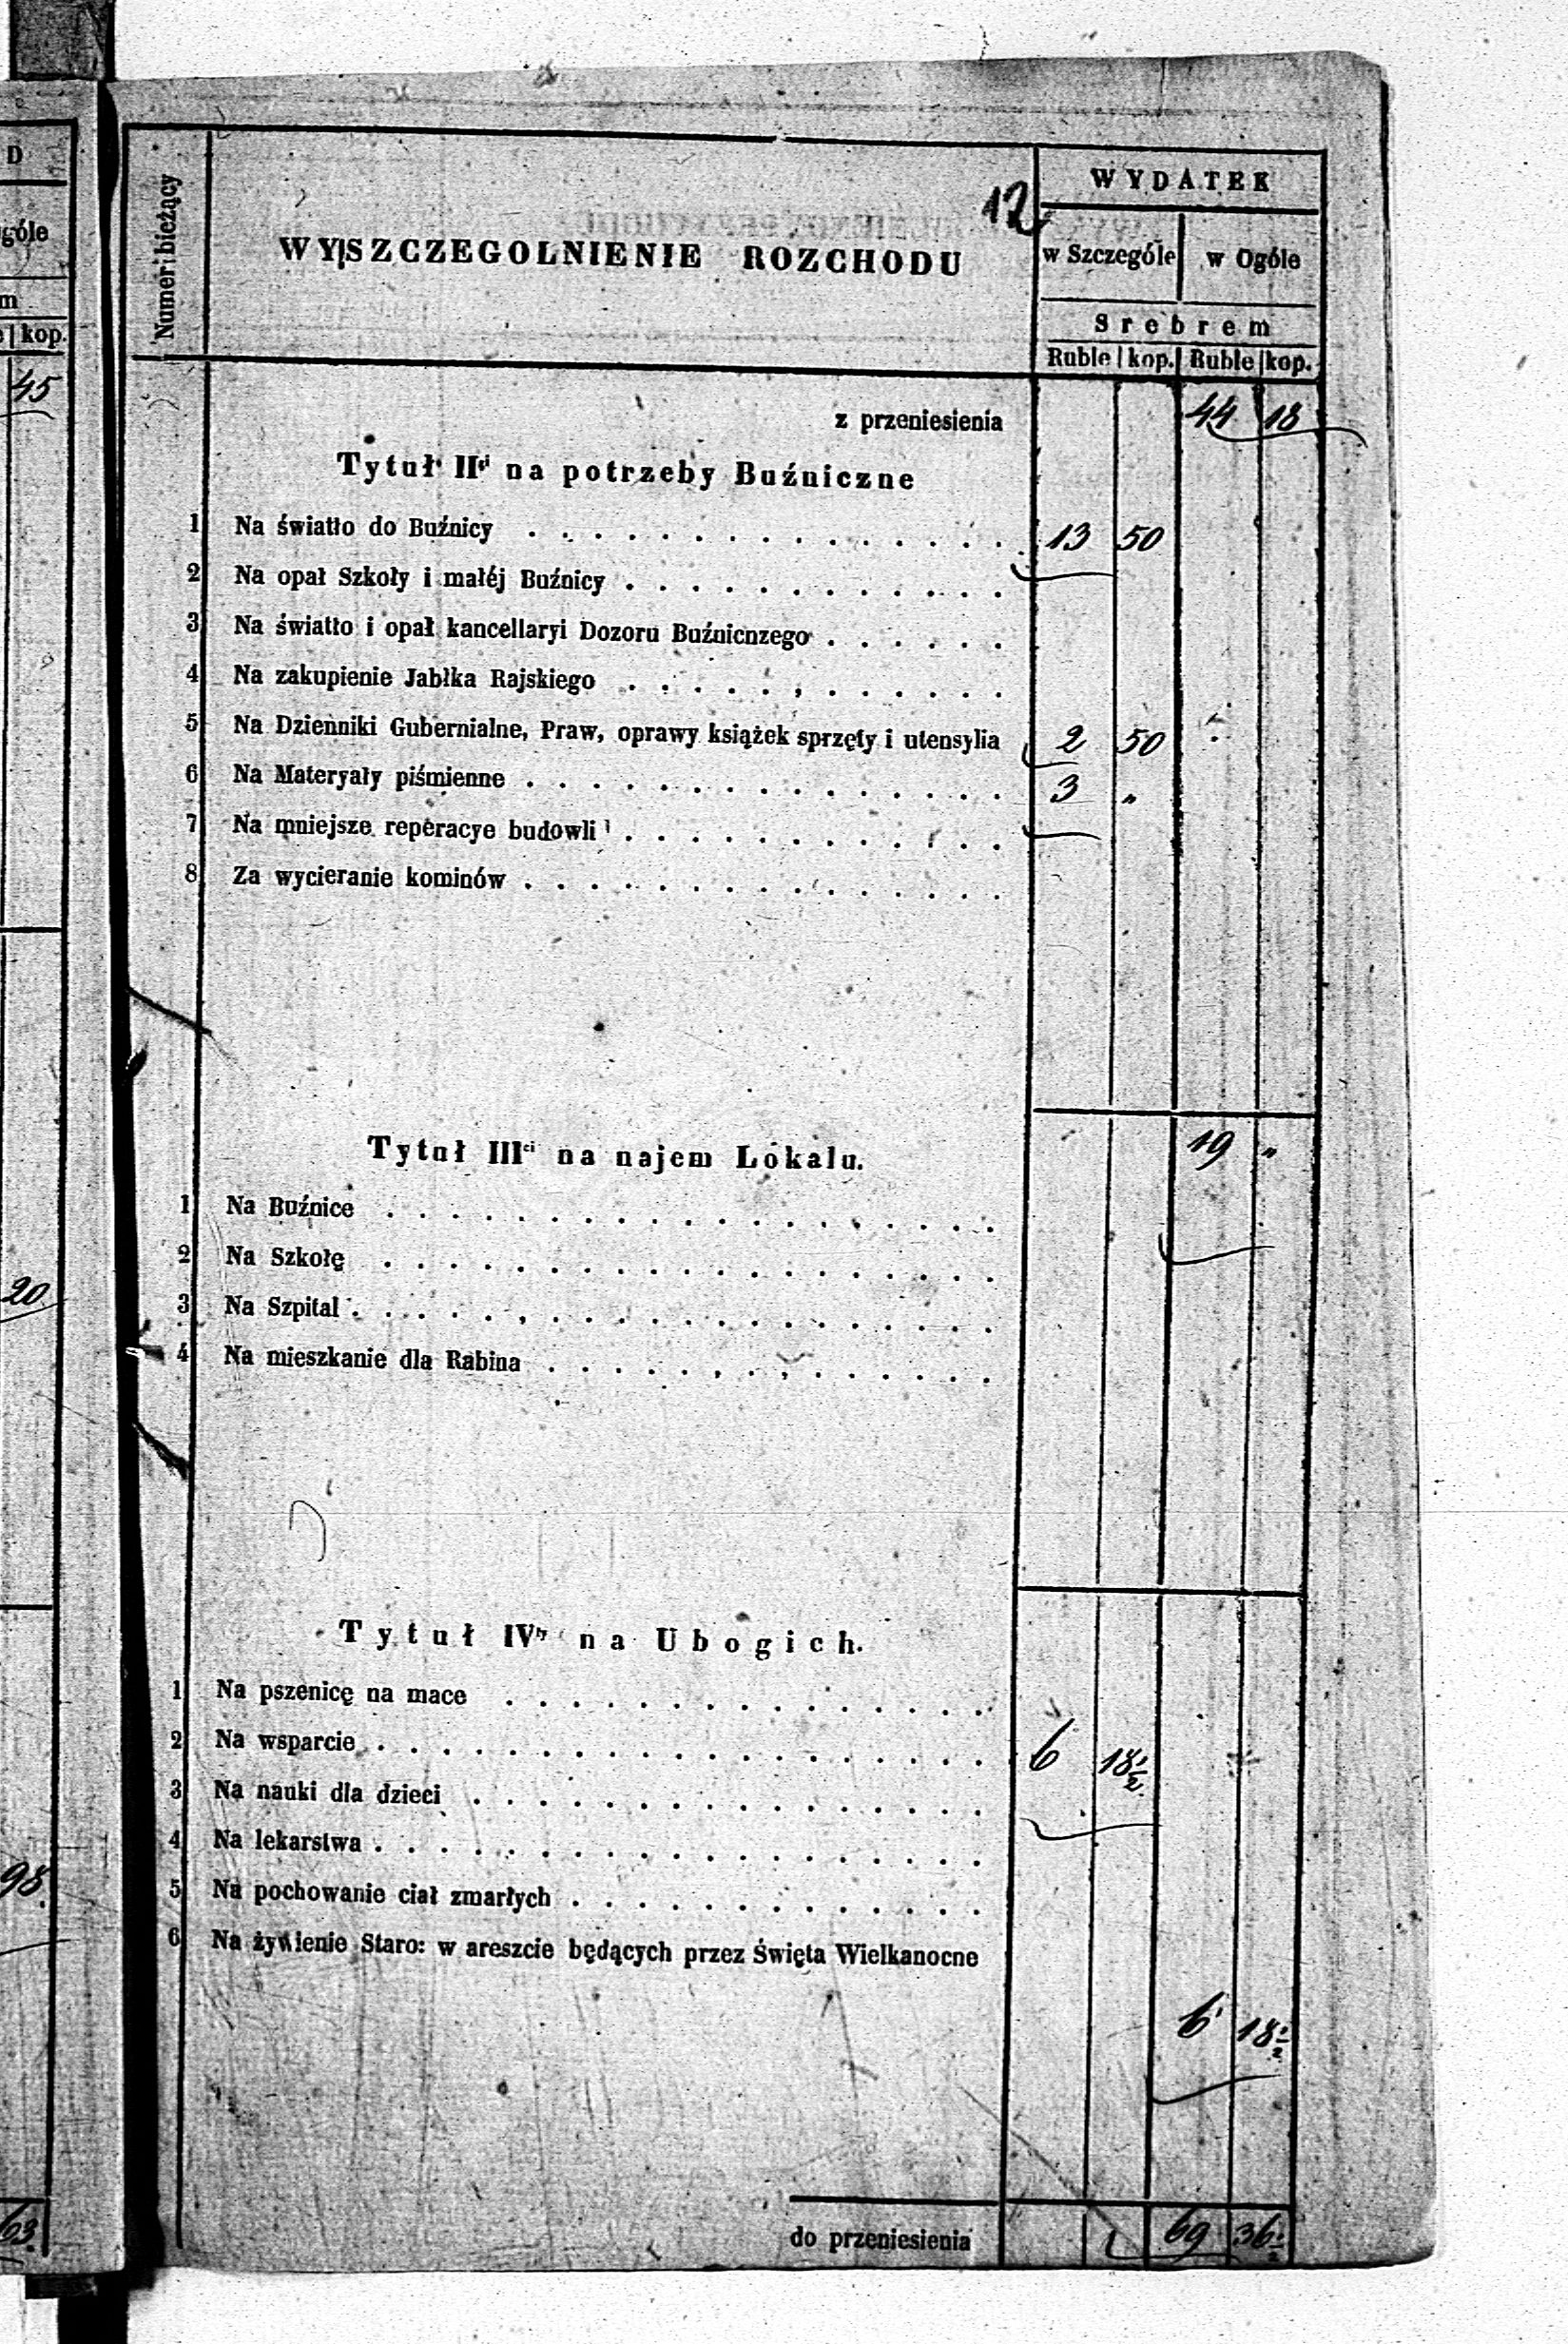 D
góle
m
kop.
45
20
98
63
12
Numer bieżący
WYSZCZEGOLNIENIE ROZCHODU
WYDATEK
w Szczególe w Ogóle
Srebrem
Ruble kop. Ruble kop.
z przeniesienia 44 18
Tytuł IIgi na potrzeby Buźniczne
1 Na światło do Buźnicy . . . . . . . . . . . . . . . 13 50
2 Na opał Szkoły i małéj Buźnicy . . . . . . . . . . . .
3 Na światło i opał kancellaryi Dozoru Buźnicnzego . . . . . .
4 Na zakupienie Jabłka Rajskiego . . . . . . . . . . . .
5 Na Dzienniki Gubernialne, Praw, oprawy książek sprzęty i utensylia 2 50
6 Na Materyały piśmienne . . . . . . . . . . . . . . . 3 "
7 Na mniejsze reperacye budowli . . . . . . . . . . . .
8 Za wycieranie kominów . . . . . . . . . . . . . . .
19 "
Tytuł IIIci na najem Lokalu.
1 Na Buźnice . . . . . . . . . . . . . . . . . . .
2 Na Szkołę . . . . . . . . . . . . . . . . . . .
3 Na Szpital . . . . . . . . . . . . . . . . . . . .
4 Na mieszkanie dla Rabina . . . . . . . . . . . . . .
Tytuł IVty na Ubogich.
1 Na pszenicę na mace . . . . . . . . . . . . . . .
2 Na wsparcie . . . . . . . . . . . . . . . . . . . 6 18½
3 Na nauki dla dzieci . . . . . . . . . . . . . . . .
4 Na lekarstwa . . . . . . . . . . . . . . . . . . .
5 Na pochowanie ciał zmarłych . . . . . . . . . . . . .
6 Na żywienie Staro: w areszcie będących przez Święta Wielkanocne
6 18½
do przeniesienia 69 36½